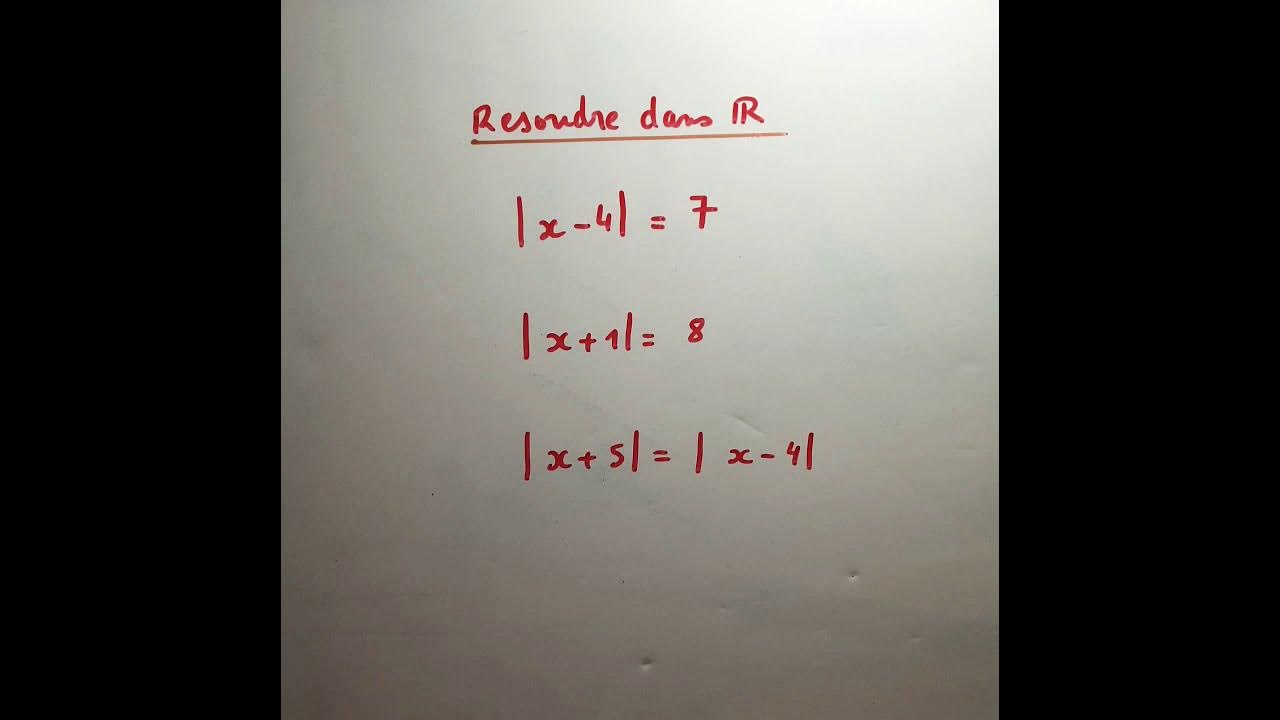 Resoudre dans ℝ
|x-4| = 7
|x+1| = 8
|x+5| = |x-4|